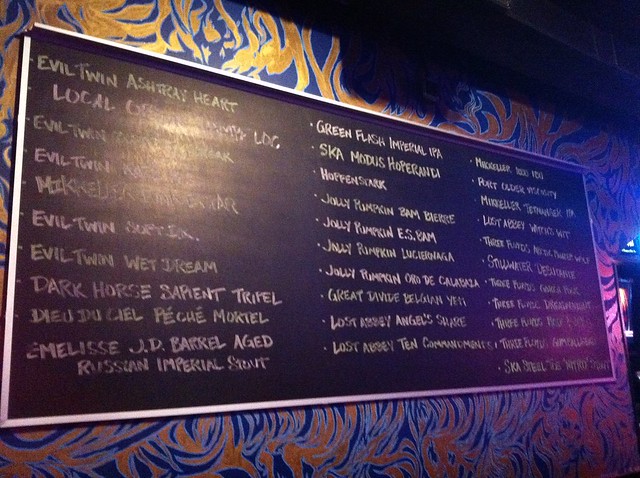 EVIL TWIN ASHTRAY HEART
LOCAL LOC
EVIL TWIN
EVIL TWIN
MIKKELLER
EVIL TWIN SOFT DK.
EVIL TWIN WET DREAM
DARK HORSE SAPIENT TRIPEL
DIEU DU CIEL PÉCHÉ MORTEL
EMELISSE J.D. BARREL AGED
RUSSIAN IMPERIAL STOUT
· GREEN FLASH IMPERIAL IPA
· SKA MODUS HOPERANDI
· HOPFENSTARK
· JOLLY PUMPKIN BAM BIERRE
· JOLLY PUMPKIN E.S. BAM
· JOLLY PUMPKIN LUCIERNAGA
· JOLLY PUMPKIN ORO DE CALABAZA
· GREAT DIVIDE BELGIAN YETI
· LOST ABBEY ANGEL'S SHARE
· LOST ABBEY TEN COMMANDMENTS
· MIKKELLER 1000 IBU
· PORT OLDER VISCOSITY
· MIKKELLER IPA
· LOST ABBEY WIT
· THREE FLOYDS ARCTIC PANZER WOLF
· STILLWATER DEBUTANTE
· THREE FLOYDS
· THREE FLOYDS DREADNAUGHT
· THREE FLOYDS
· THREE FLOYDS GUMBALLHEAD
· SKA STEEL TOE "NITRO" STOUT